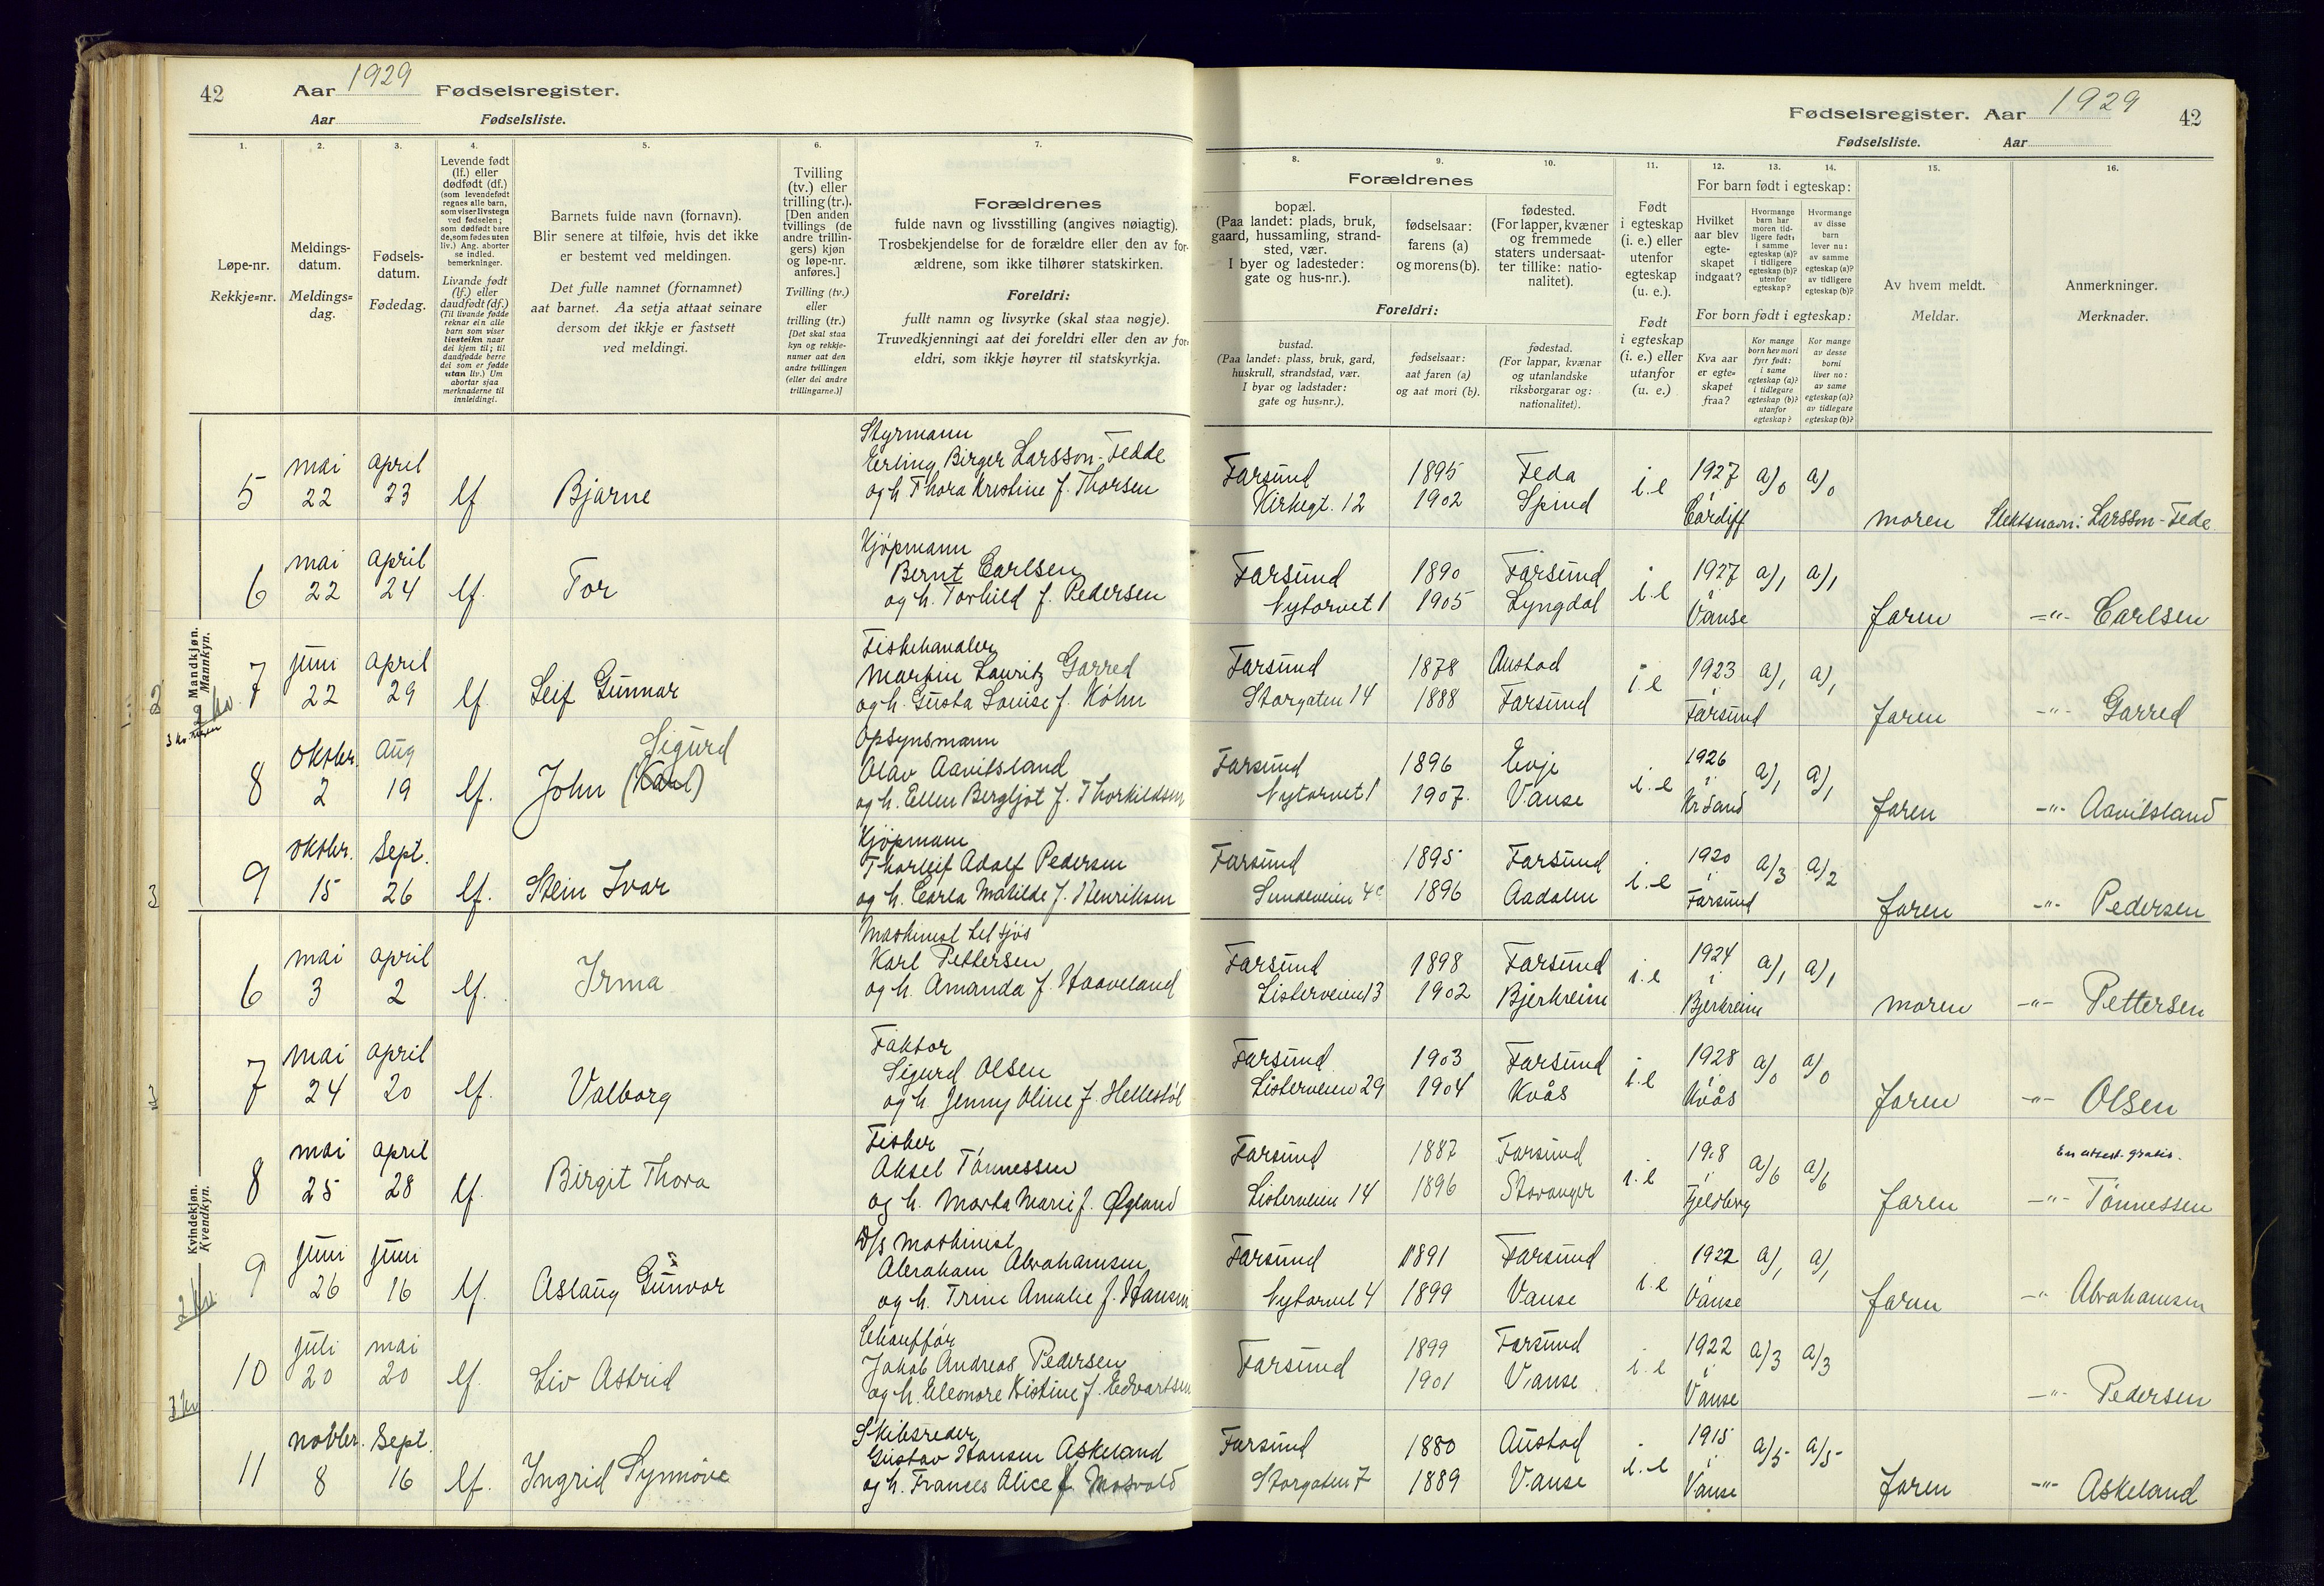 42 Aar 1929 Fødselsregister.
Aar Fødselsliste.
1. 2. 3. 4. 5. 6. 7.
Løpe-nr.
Rekkje-nr.
Meldings-
datum.
Meldings-
dag.
Fødsels-
datum.
Fødedag.
Levende født
(lf.) eller
dødfødt (df.)
(som levendefødt
regnes alle barn,
som viser livstegn
ved fødselen;
som dødfødt bare
de, som fødes uten
liv.) Ang. aborter
se indled.
bemerkninger.
Livande født
(lf.) eller
daudfødt (df.)
(Til livande fødde
reknar ein alle
born som viser
livsteikn naar
dei kjem til; til
daudfødde berre
dei som er fødde
utan liv.) Um
abortar sjaa
merknaderne til
innleidingi.
Barnets fulde navn (fornavn).
Blir senere at tilføie, hvis det ikke
er bestemt ved meldingen.
Det fulle namnet (fornamnet)
aat barnet. Aa setja attaat seinare
dersom det ikkje er fastsett
ved meldingi.
Tvilling
(tv.) eller
trilling (tr.).
[Den anden
tvillings (de
andre trillin-
gers) kjøn
og løpe-nr.
anføres.]
Tvilling (tv.)
eller
trilling (tr.)
[Det skal staa
kyn og rekkje-
numer aat den
andre tvillingen
(eller dei andre
trillingarne.)]
Forældrenes
fulde navn og livsstilling (angives nøiagtig).
Trosbekjendelse for de forældre eller den av for-
ældrene, som ikke tilhører statskirken.
Foreldri:
fullt namn og livsyrke (skal staa nøgje).
Truvedkjenningi aat dei foreldri eller den av for-
eldri, som ikkje høyrer til statskyrkja.
Mandkjøn.
Mannkyn.
5 mai 22 april 23 lf Bjarne
Styrmann
Erling Birger Larsson-Fedde
og h. Thora Kristine f. Thorsen
6 mai 22 april 24 lf. Tor
Kjøpmann
Bernt Carlsen
og h. Torhild f. Pedersen
7 juni 22 april 29 lf. Leif Gunnar
Fiskehandler
Martin Lauritz Garred
og h. Gusta Louise f. Köhn
8 oktbr. 2 aug 19 lf. John (Karl) Sigurd
Opsynsmann
Olav Aavitsland
og h. Ellen Bergljot f. Thorkildsen
9 oktbr. 15 sept. 26 lf. Stein Ivar
Kjøpmann
Thorleif Adolf Pedersen
og h. Carla Matilde f. Henriksen
Kvindekjøn.
Kvendkyn.
6 mai 3 april 2 lf. Irma
Maskinist tilsjøs
Karl Pettersen
og h. Amanda f. Haaveland
7 mai 24 april 20 lf. Valborg
Faktor
Sigurd Olsen
og h. Jenny Oline f. Hellestøl
8 mai 25 april 28 lf. Birgit Thora
Fisker
Aksel Tønnessen
og h. Marta Marie f. Øgland
9 juni 26 juni 16 lf. Aslaug Gunvor
D/s maskinist
Abraham Abrahamsen
og h. Trine Amalie f. Hansen
10 juli 20 mai 20 lf. Liv Astrid
Chauffør
Jakob Andreas Pedersen
og h. Eleonore Kristine f. Edvartsen
11 novbr. 8 sept. 16 lf. Ingrid Synnøve
Skibsreder
Gustav Hansen Askeland
og h. Frances Alice f. Mosvold
Fødselsregister. Aar 1929 42
Fødselsliste. Aar
8. 9. 10. 11. 12. 13. 14. 15. 16.
Forældrenes
bopæl.
(Paa landet: plads, bruk,
gaard, hussamling, strand-
sted, vær.
I byer og ladesteder:
gate og hus-nr.).
fødselsaar:
farens (a)
og morens (b).
fødested.
(For lapper, kvæner
og fremmede
staters undersaat-
ter tillike: natio-
nalitet).
Foreldri:
bustad.
(Paa landet: plass, bruk, gard,
huskrull, strandstad, vær.
I byar og ladstader:
gate og hus-nr.).
fødselsaar:
aat faren (a)
og aat mori (b).
fødestad.
(For lappar, kvænar
og utanlandske
riksborgarar og:
nationalitet).
Født
i egteskap
(i. e.) eller
utenfor
egteskap
(u. e.).
Født
i egteskap
(i. e.) eller
utanfor
(u. e.)
For barn født i egteskap:
Hvilket
aar blev
egte-
skapet
indgaat?
Hvormange
barn har
moren tid-
ligere født:
i samme
egteskap (a)?
i tidligere
egteskap (b)?
utenfor
egteskap?
Hvormange
av disse
barn
lever nu:
av samme
egteskap (a)?
av tidligere
egteskap (b)?
For born født i egteskap:
Kva aar
er egte-
skapet
fraa?
Kor mange
born hev mori
fyrr født:
i same
egteskap (a)?
i tidlegare
egteskap (b)?
utanfor
egteskap?
Kor mange
av desse
borni
liver no:
av same
egteskap (a)?
av tidlegare
egteskap (b)?
Av hvem meldt.
Meldar.
Anmerkninger.
Merknader.
Farsund 1895 Feda i.e 1927 a/0 a/0
Kirkegt. 12 1902 Spind i Cardiff moren Slektsnavn: Larsson-Fede
Farsund 1890 Farsund i.e 1927 a/1 a/1
Nytorvet 1 1905 Lyngdal i Vanse faren -"- Carlsen
Farsund 1878 Austad i.e 1923 a/1 a/1
Storgaten 14 1888 Farsund i Farsund faren -"- Garred
Farsund 1896 Evje i.e 1926 a/1 a/1
Nytorvet 1 1907. Vanse i Kr Sand faren -"- Aavitsland
Farsund 1895 Farsund i.e 1920 a/3 a/2
Sundeveien 4c 1896 Aadalen i Farsund faren -"- Pedersen
Farsund 1898 Farsund i.e 1924 a/1 a/1
Listerveien 13 1902 Bjerkreim i Bjerkreim moren -"- Pettersen
Farsund 1903 Farsund i.e 1928 a/0 a/0
Listerveien 29 1904 Kvås i Kvås faren -"- Olsen
Farsund 1887 Farsund i.e 1918 a/6 a/6 En attest gratis.
Listerveien 14 1896 Stavanger i Fjeldberg faren -"- Tønnessen
Farsund 1891 Farsund i.e 1922 a/1 a/1
Nytorvet 4 1899 Vanse i Vanse faren -"- Abrahamsen
Farsund 1899 Farsund i.e 1922 a/3 a/3
1901 Vanse i Vanse -"- Pedersen
Farsund 1880 Austad i.e 1915 a/5 a/5
Storgaten 7 1889 Vanse i Vanse faren -"- Askeland